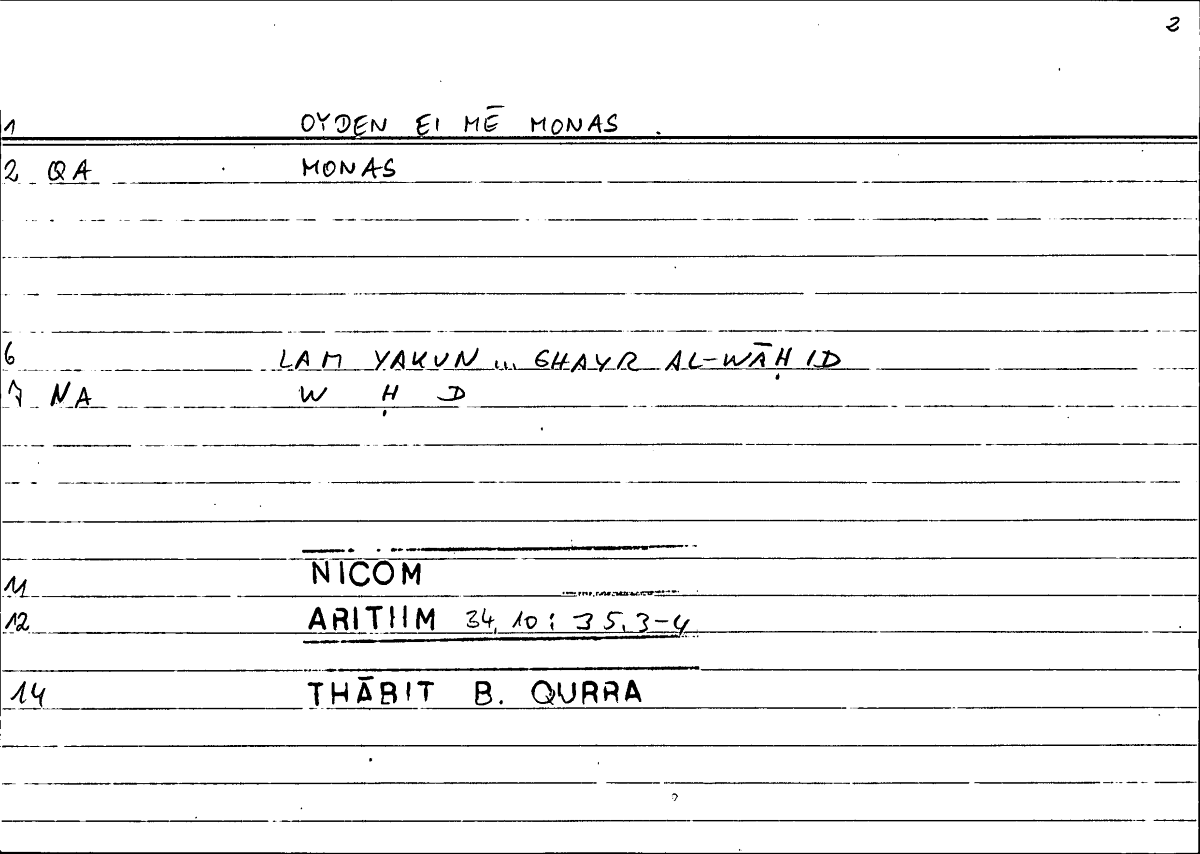 2
1 OYDEN EI MĒ MONAS .
2 QA MONAS
6 LAM YAKUN ... GHAYR AL-WĀḤID
7 NA W Ḥ D
11 NICOM
12 ARITHM 34,10 : 35,3-4
14 THĀBIT B. QURRA